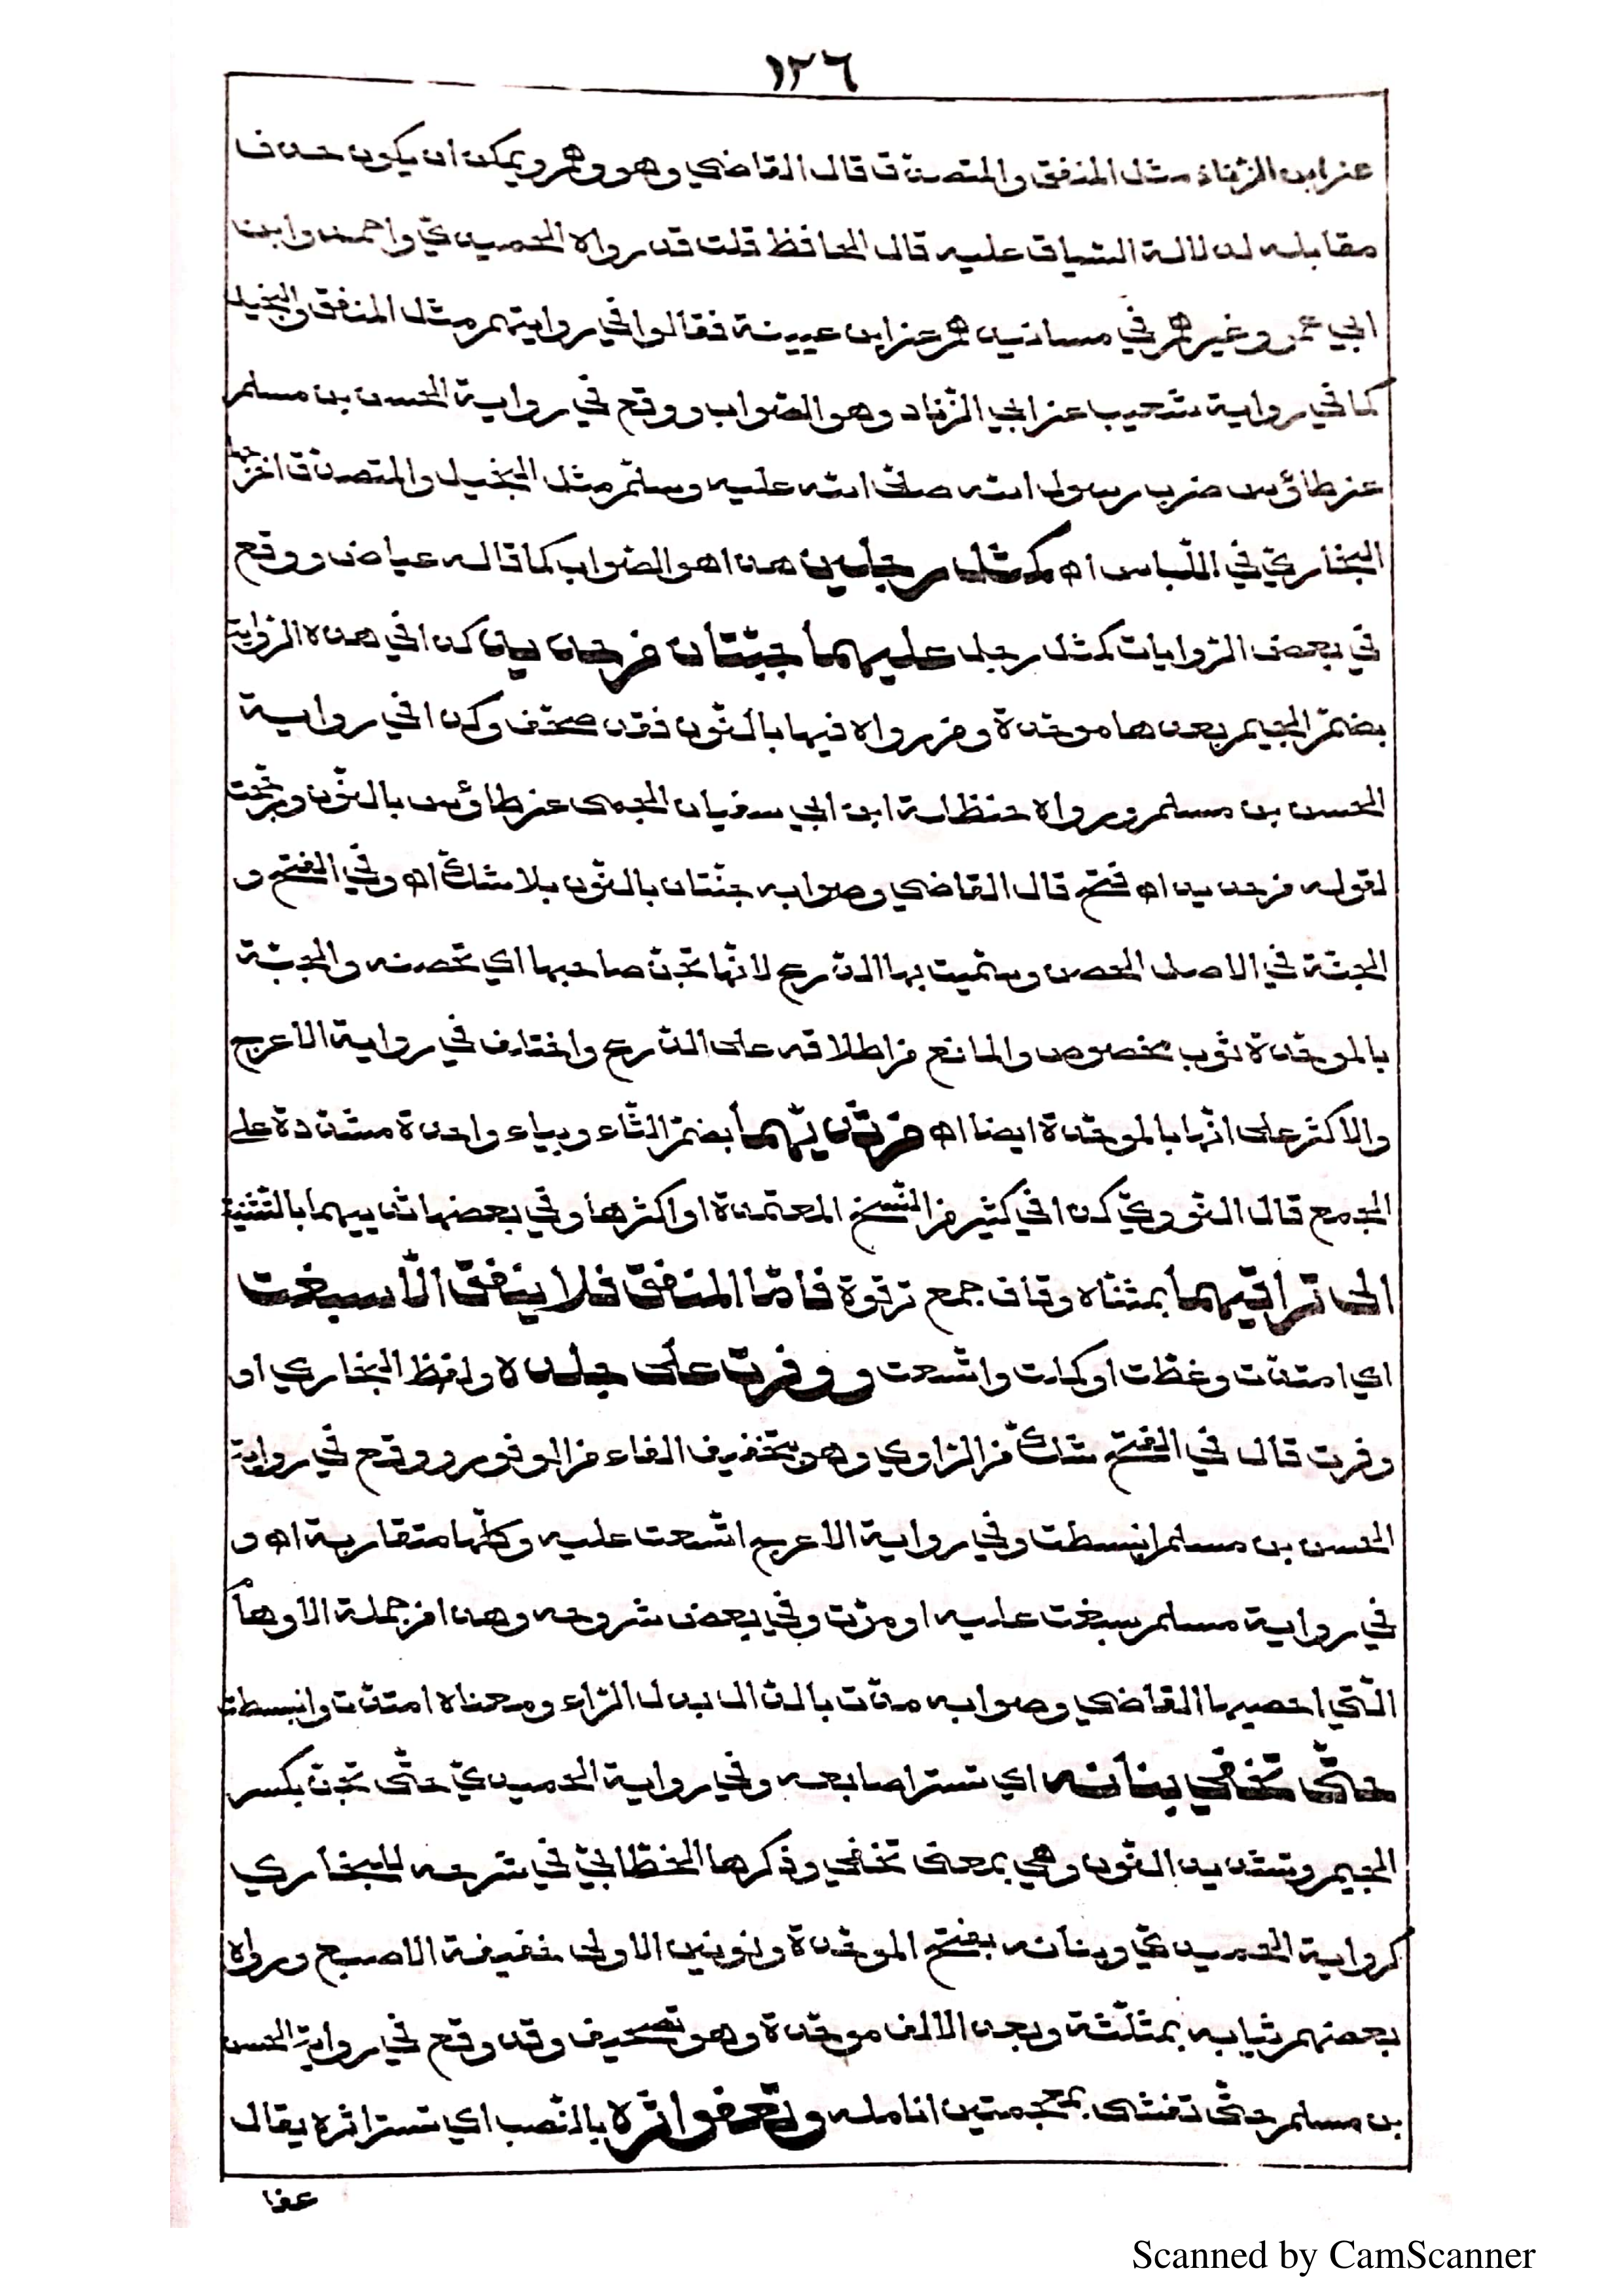 ١٢٦
عن ابن الزناد مثل المنفق والمتصدق قال القاضي وهو وهم ويمكن ان يكون حذف
مقابله لدلالة السياق عليه قال الحافظ قلت قد رواه الحميدي واحمد وابن
ابي عمر وغيرهم في مسانيدهم عن ابن عيينة فقالوا في روايتهم مثل المنفق والبخيل
كما في رواية شعيب عن ابي الزناد وهو الصواب ووقع في رواية الحسن بن مسلم
عن طاؤس ضرب رسول الله صلى الله عليه وسلم مثل البخيل والمتصدق اخرجها
البخاري في اللباس اه كمثل رجلين هذا هو الصواب كما قاله عياض ووقع
في بعض الروايات كمثل رجل عليهما جبتان من حديد كذا في هذه الرواية
بضم الجيم بعدها موحدة ومن رواه فيها بالنون فقد صحف وكذا في رواية
الحسن بن مسلم ورواه حنظلة ابن ابي سفيان الجمحى عن طاؤس بالنون ورجحت
لقوله من حديد اه فتح قال القاضي وصوابه جنتان بالنون بلا شك اه وفي الفتح و
الجنة في الاصل الحصن وسميت بها الدرع لانها تجن صاحبها اي تحصنه والجبة
بالموحدة ثوب مخصوص والمانع من اطلاقه على الدرع واختلف في رواية الاعرج
والاكثر على انها بالموحدة ايضا اه من ثديهما بضم الثاء وبياء واحدة مشددة على
الجمع قال النووي كذا في كثير من النسخ المعتمدة او اكثرها وفي بعضها ثدييهما بالتثنية
الى تراقيهما بمثناه وقاف جمع ترقوة فاما المنفق فلا ينفق الا سبغت
اي امتدت وغطت او كملت واتسعت ووفرت على جلده ولفظ البخاري او
وفرت قال في الفتح شك من الراوي وهو بتخفيف الفاء من الوفور ووقع في رواية
الحسن بن مسلم انبسطت وفي رواية الاعرج اتسعت عليه وكلها متقاربة اه و
في رواية مسلم سبغت عليه او مرت وفي بعض شروحه وهذا من جملة الاوهام
التي احصيها القاضي وصوابه مدت بالدال بدل الراء ومعناه امتدت وانبسطت
حتى تخفي بنانه اي تستر اصابعه وفي رواية الحميدي حتى تجن بكسر
الجيم وتشديد النون وهي بمعنى تخفي وذكرها الخطابي في شرحه للبخاري
كرواية الحميدي وبنانه بفتح الموحدة ونونين الاولى خفيفة الاصبع ورواه
بعضهم ثيابه بمثلثة وبعد الالف موحدة وهو تصحيف وقد وقع في رواية الحسن
بن مسلم حتى تغشى بمعجمتين انامله وتعفو اثره بالنصب اي تستر اثره يقال
عفا
Scanned by CamScanner